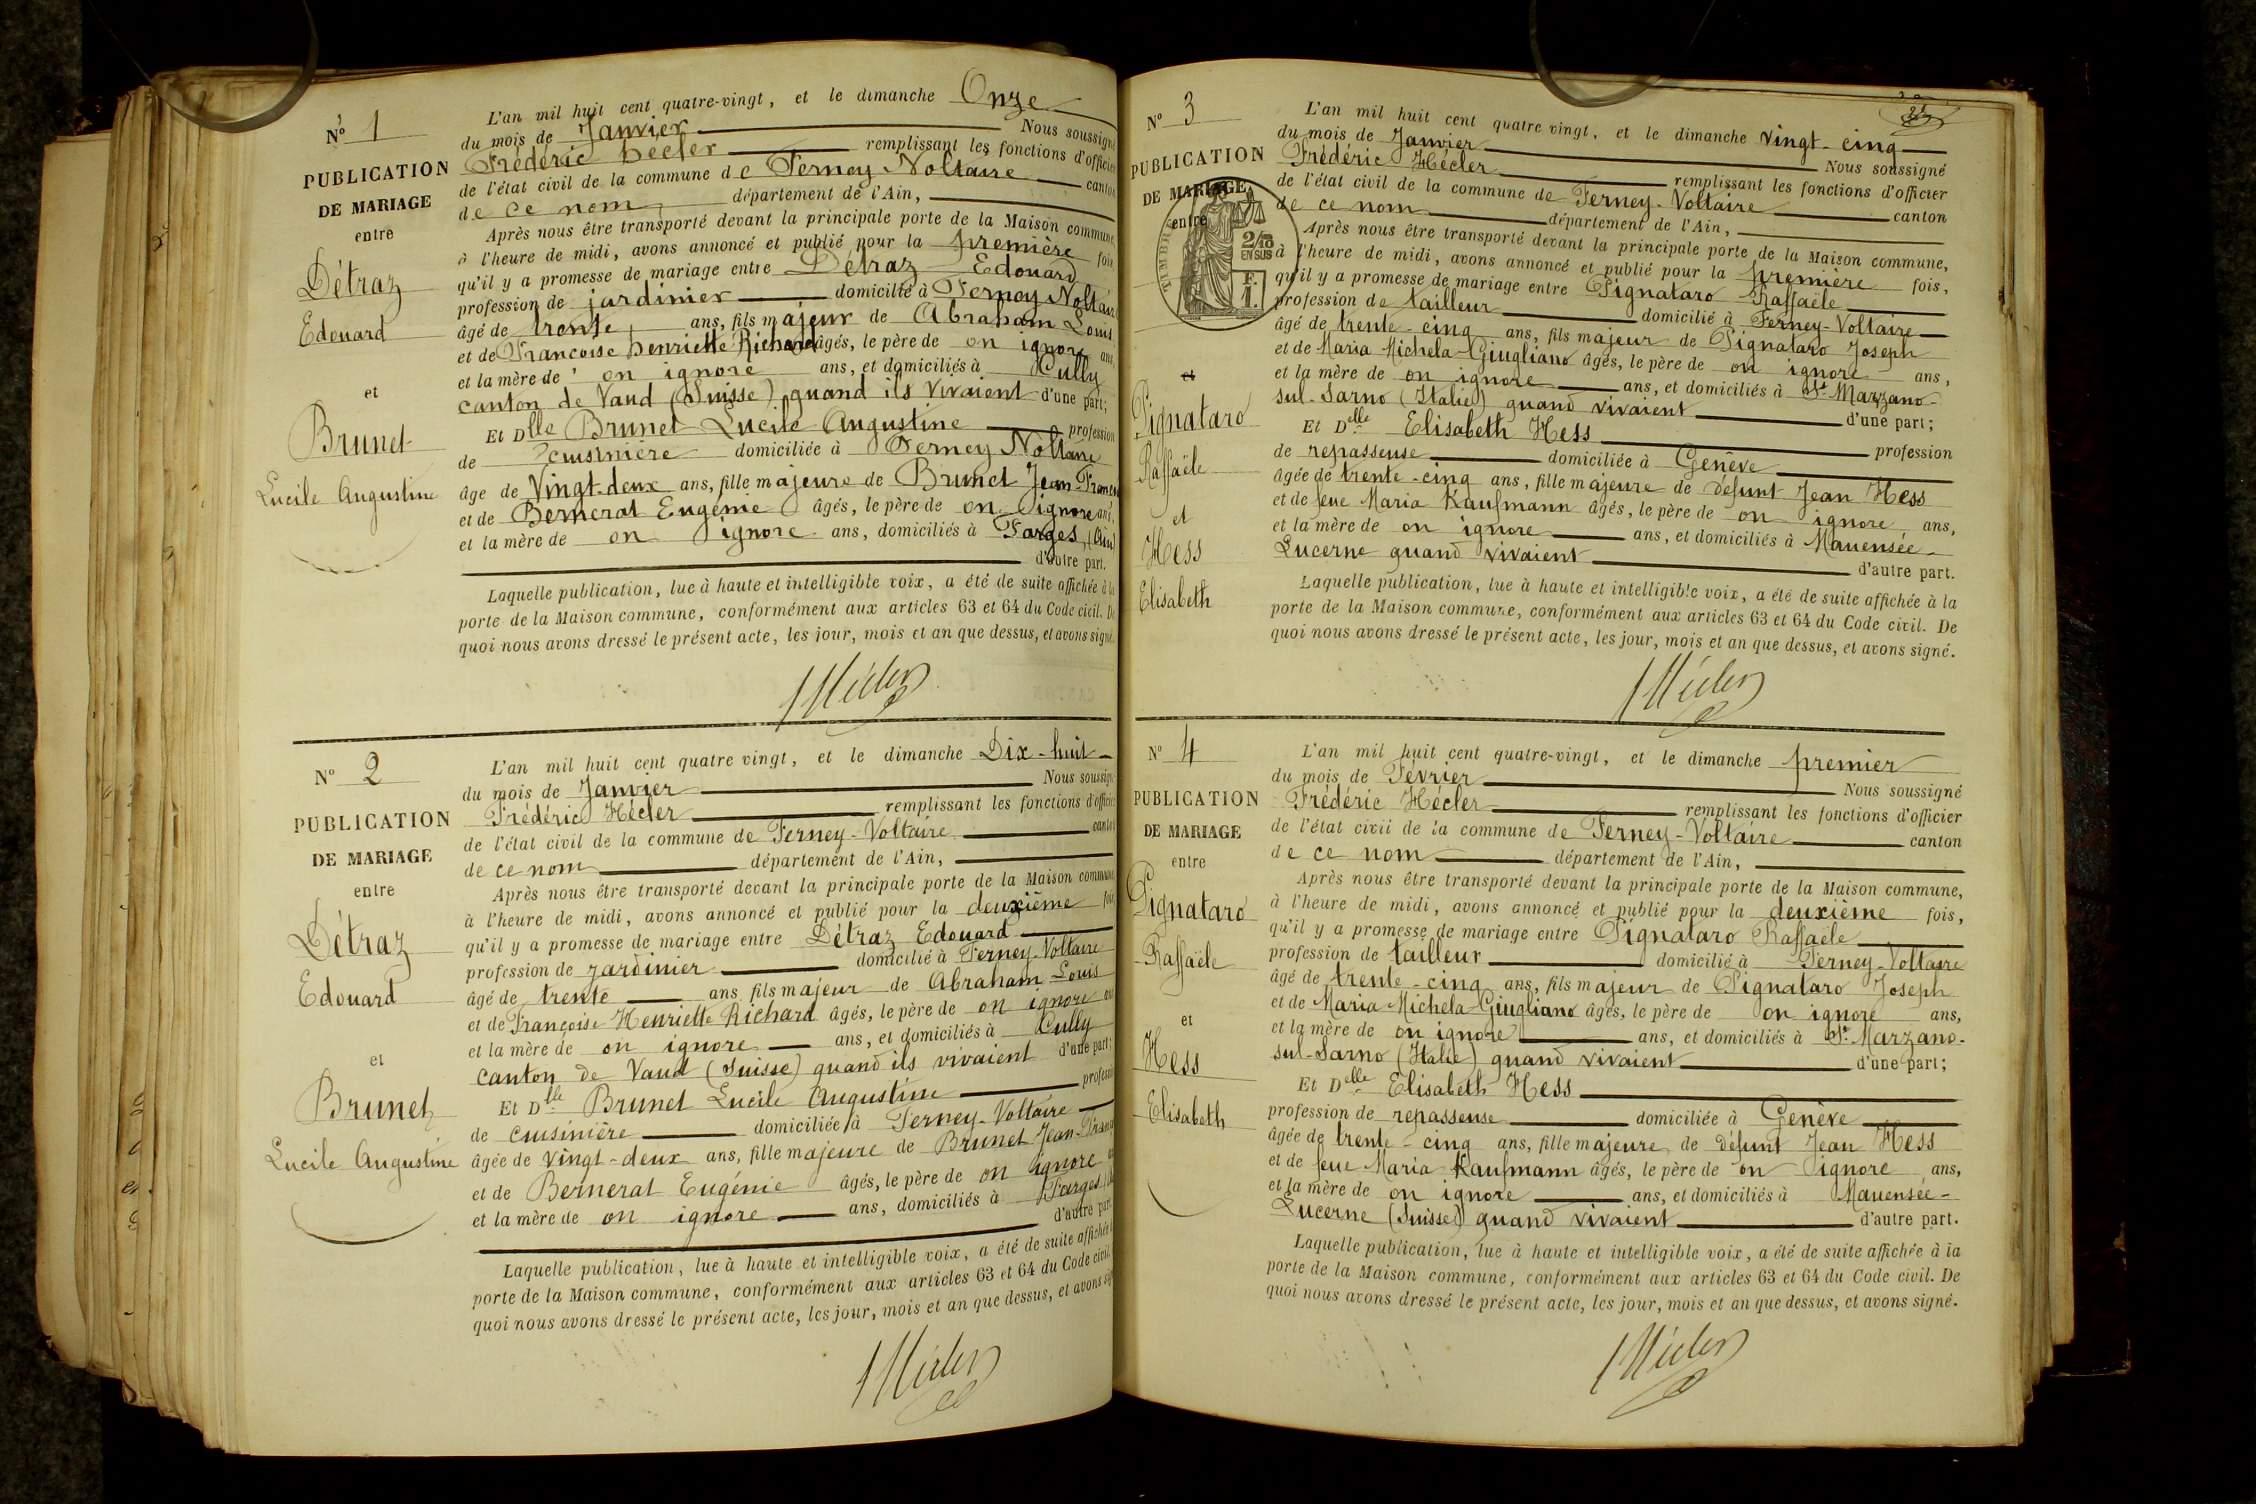 N° 1
PUBLICATION
DE MARIAGE
entre
Détraz
Edouard
et
Brunet
Lucile Augustine
L'an mil huit cent quatre-vingt, et le dimanche Onze
du mois de Janvier Nous soussigné
Frédéric Hécler remplissant les fonctions d'officier
de l'état civil de la commune de Ferney-Voltaire canton
de ce nom département de l'Ain,
Après nous être transporté devant la principale porte de la Maison commune,
à l'heure de midi, avons annoncé et publié pour la première fois,
qu'il y a promesse de mariage entre Détraz Edouard
profession de jardinier domicilié à Ferney Voltaire
âgé de trente ans, fils majeur de Abraham Louis
et de Françoise Henriette Richard âgés, le père de on ignore ans,
et la mère de on ignore ans, et domiciliés à Cully
canton de Vaud (Suisse) quand ils vivaient d'une part;
Et Dlle Brunet Lucile Augustine profession
de cuisinière domiciliée à Ferney Voltaire
âge de Vingt-deux ans, fille majeure de Brunet Jean-
et de Bernerat Eugénie âgés, le père de on ignore ans,
et la mère de on ignore ans, domiciliés à Farges (Ain)
d'autre part.
Laquelle publication, lue à haute et intelligible voix, a été de suite affichée à la
porte de la Maison commune, conformément aux articles 63 et 64 du Code civil. De
quoi nous avons dressé le présent acte, les jour, mois et an que dessus, et avons signé.
Hécler
N° 2
PUBLICATION
DE MARIAGE
entre
Détraz
Edouard
et
Brunet
Lucile Augustine
L'an mil huit cent quatre vingt, et le dimanche Dix-huit
du mois de Janvier Nous soussigné
Frédéric Hécler remplissant les fonctions d'officier
de l'état civil de la commune de Ferney-Voltaire canton
de ce nom département de l'Ain,
Après nous être transporté devant la principale porte de la Maison commune
à l'heure de midi, avons annoncé et publié pour la deuxième fois
qu'il y a promesse de mariage entre Détraz Edouard
profession de jardinier domicilié à Ferney-Voltaire
âgé de trente ans fils majeur de Abraham Louis
et de Françoise Henriette Richard âgés, le père de on ignore
et la mère de on ignore ans, et domiciliés à Cully
canton de Vaud (Suisse) quand ils vivaient d'une part;
Et Dlle Brunet Lucile Augustine profession
de cuisinière domiciliée à Ferney-Voltaire
âgée de vingt-deux ans, fille majeure de Brunet Jean-
et de Bernerat Eugénie âgés, le père de on ignore
et la mère de on ignore ans, domiciliés à Farges
d'autre part
Laquelle publication, lue à haute et intelligible voix, a été de suite affichée
porte de la Maison commune, conformément aux articles 63 et 64 du Code civil.
quoi nous avons dressé le présent acte, les jour, mois et an que dessus, et avons
Hécler
N° 3
PUBLICATION
DE MARIAGE
entre
2/10
EN SUS
F.
1.
et
Pignataro
Raffaële
et
Hess
Elisabeth
L'an mil huit cent quatre vingt, et le dimanche vingt-cinq
du mois de Janvier Nous soussigné
Frédéric Hécler remplissant les fonctions d'officier
de l'état civil de la commune de Ferney-Voltaire canton
de ce nom département de l'Ain,
Après nous être transporté devant la principale porte de la Maison commune,
à l'heure de midi, avons annoncé et publié pour la première fois,
qu'il y a promesse de mariage entre Pignataro Raffaële
profession de tailleur domicilié à Ferney-Voltaire
âgé de trente-cinq ans, fils majeur de Pignataro Joseph
et de Maria Michela Giugliano âgés, le père de on ignore ans,
et la mère de on ignore ans, et domiciliés à St Marzano-
sul-Sarno (Italie) quand vivaient d'une part;
Et Delle Elisabeth Hess profession
de repasseuse domiciliée à Genève
âgée de trente-cinq ans, fille majeure de défunt Jean Hess
et de feue Maria Kaufmann âgés, le père de on ignore ans,
et la mère de on ignore ans, et domiciliés à Mauensée-
Lucerne quand vivaient d'autre part.
Laquelle publication, lue à haute et intelligible voix, a été de suite affichée à la
porte de la Maison commune, conformément aux articles 63 et 64 du Code civil. De
quoi nous avons dressé le présent acte, les jour, mois et an que dessus, et avons signé.
Hécler
N° 4
PUBLICATION
DE MARIAGE
entre
Pignataro
Raffaële
et
Hess
Elisabeth
L'an mil huit cent quatre-vingt, et le dimanche premier
du mois de Février Nous soussigné
Frédéric Hécler remplissant les fonctions d'officier
de l'état civil de la commune de Ferney-Voltaire canton
de ce nom département de l'Ain,
Après nous être transporté devant la principale porte de la Maison commune,
à l'heure de midi, avons annoncé et publié pour la deuxième fois,
qu'il y a promesse de mariage entre Pignataro Raffaële
profession de tailleur domicilié à Ferney-Voltaire
âgé de trente-cinq ans, fils majeur de Pignataro Joseph
et de Maria Michela Giugliano âgés, le père de on ignore ans,
et la mère de on ignore ans, et domiciliés à St Marzano-
sul-Sarno (Italie) quand vivaient d'une part;
Et Delle Elisabeth Hess
profession de repasseuse domiciliée à Genève
âgée de trente-cinq ans, fille majeure de défunt Jean Hess
et de feue Maria Kaufmann âgés, le père de on ignore ans,
et la mère de on ignore ans, et domiciliés à Mauensée-
Lucerne (Suisse) quand vivaient d'autre part.
Laquelle publication, lue à haute et intelligible voix, a été de suite affichée à la
porte de la Maison commune, conformément aux articles 63 et 64 du Code civil. De
quoi nous avons dressé le présent acte, les jour, mois et an que dessus, et avons signé.
Hécler